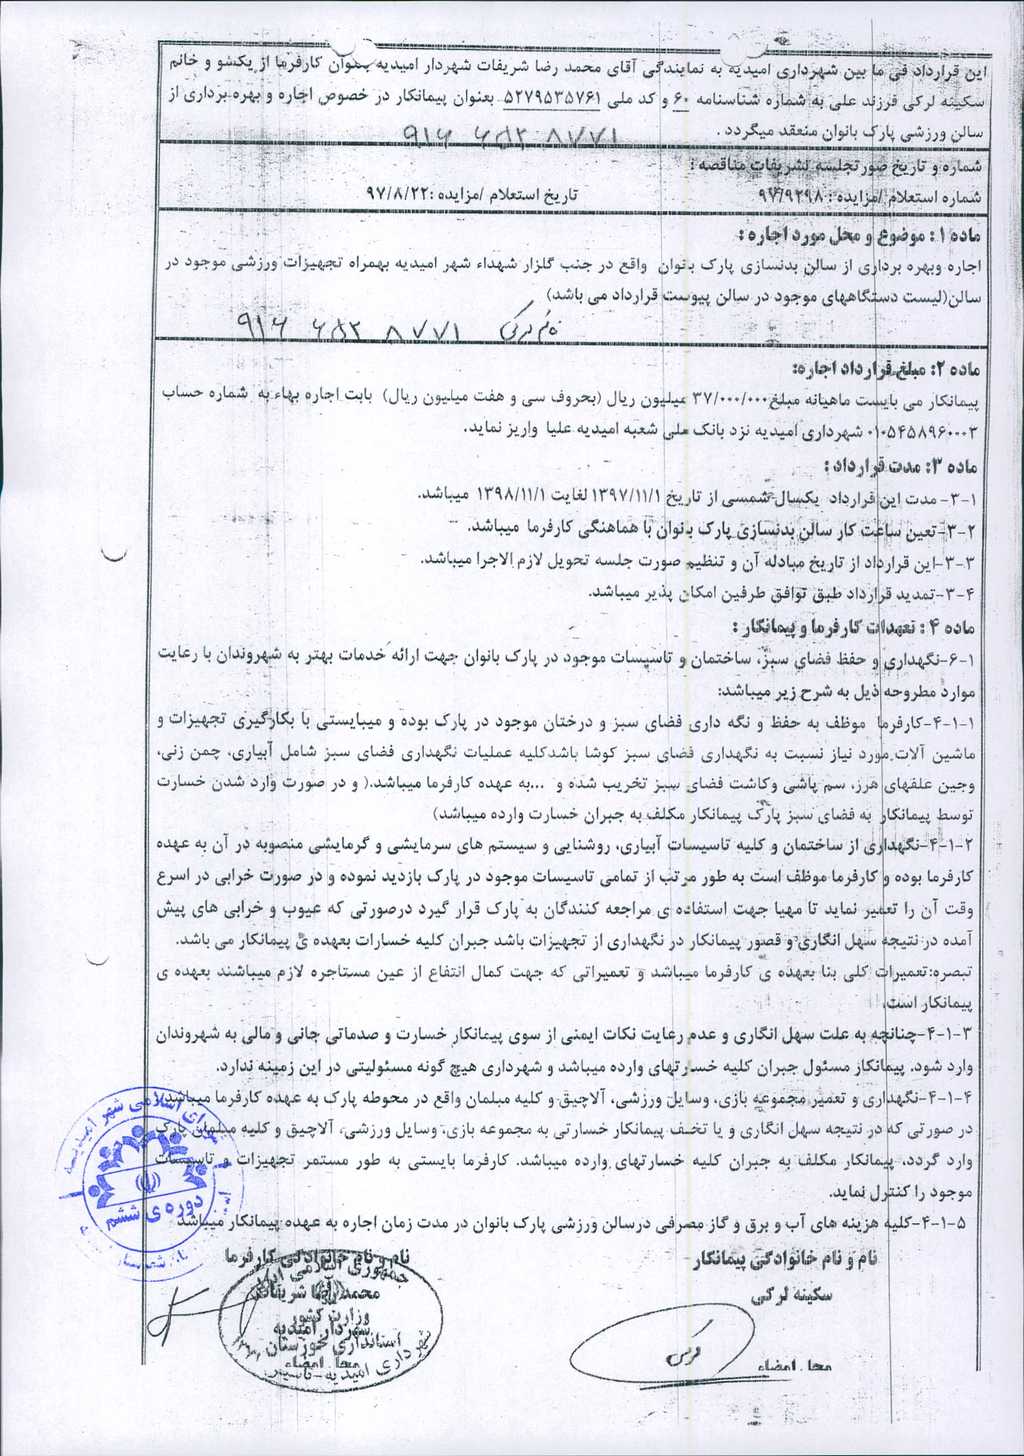 این قرارداد فی ما بین شهرداری امیدیه به نمایندگی آقای محمد رضا شریفات شهردار امیدیه بعنوان کارفرما از یکسو و خانم
سکینه لرکی فرزند علی به شماره شناسنامه ۶۰ و کد ملی ۵۲۷۹۵۳۵۷۶۱ بعنوان پیمانکار در خصوص اجاره و بهره برداری از
سالن ورزشی پارک بانوان منعقد میگردد.
۹۱۶ ۶۵۲ ۸۷۷۱
شماره و تاریخ صورتجلسه تشریفات مناقصه :
شماره استعلام /مزایده : ۹۷/۹۲۹۸ تاریخ استعلام /مزایده :۹۷/۸/۲۲
ماده ۱ : موضوع و محل مورد اجاره :
اجاره وبهره برداری از سالن بدنسازی پارک بانوان واقع در جنب گلزار شهداء شهر امیدیه بهمراه تجهیزات ورزشی موجود در
سالن(لیست دستگاههای موجود در سالن پیوست قرارداد می باشد)
لرکی ۹۱۶ ۶۵۲ ۸۷۷۱
ماده ۲: مبلغ قرارداد اجاره:
پیمانکار می بایست ماهیانه مبلغ۳۷/۰۰۰/۰۰۰ میلیون ریال (بحروف سی و هفت میلیون ریال) بابت اجاره بهاء به شماره حساب
۰۱۰۵۴۵۸۹۶۰۰۰۳ شهرداری امیدیه نزد بانک ملی شعبه امیدیه علیا واریز نماید.
ماده ۳: مدت قرارداد :
۳-۱- مدت این قرارداد یکسال شمسی از تاریخ ۱۳۹۷/۱۱/۱ لغایت ۱۳۹۸/۱۱/۱ میباشد.
۳-۲-تعین ساعت کار سالن بدنسازی پارک بانوان با هماهنگی کارفرما میباشد.
۳-۳-این قرارداد از تاریخ مبادله آن و تنظیم صورت جلسه تحویل لازم الاجرا میباشد.
۳-۴-تمدید قرارداد طبق توافق طرفین امکان پذیر میباشد.
ماده ۴ : تعهدات کارفرما و پیمانکار :
۶-۱-نگهداری و حفظ فضای سبز، ساختمان و تاسیسات موجود در پارک بانوان جهت ارائه خدمات بهتر به شهروندان با رعایت
موارد مطروحه ذیل به شرح زیر میباشد:
۴-۱-۱-کارفرما موظف به حفظ و نگه داری فضای سبز و درختان موجود در پارک بوده و میبایستی با بکارگیری تجهیزات و
ماشین آلات مورد نیاز نسبت به نگهداری فضای سبز کوشا باشدکلیه عملیات نگهداری فضای سبز شامل آبیاری، چمن زنی،
وجین علفهای هرز، سم پاشی وکاشت فضای سبز تخریب شده و ...به عهده کارفرما میباشد.( و در صورت وارد شدن خسارت
توسط پیمانکار به فضای سبز پارک پیمانکار مکلف به جبران خسارت وارده میباشد)
۴-۱-۲-نگهداری از ساختمان و کلیه تاسیسات آبیاری، روشنایی و سیستم های سرمایشی و گرمایشی منصوبه در آن به عهده
کارفرما بوده و کارفرما موظف است به طور مرتب از تمامی تاسیسات موجود در پارک بازدید نموده و در صورت خرابی در اسرع
وقت آن را تعمیر نماید تا مهیا جهت استفاده ی مراجعه کنندگان به پارک قرار گیرد درصورتی که عیوب و خرابی های پیش
آمده در نتیجه سهل انگاری و قصور پیمانکار در نگهداری از تجهیزات باشد جبران کلیه خسارات بعهده ی پیمانکار می باشد.
تبصره:تعمیرات کلی بنا بعهده ی کارفرما میباشد و تعمیراتی که جهت کمال انتفاع از عین مستاجره لازم میباشند بعهده ی
پیمانکار است.
۴-۱-۳-چنانچه به علت سهل انگاری و عدم رعایت نکات ایمنی از سوی پیمانکار خسارت و صدماتی جانی و مالی به شهروندان
وارد شود. پیمانکار مسئول جبران کلیه خسارتهای وارده میباشد و شهرداری هیچ گونه مسئولیتی در این زمینه ندارد.
۴-۱-۴-نگهداری و تعمیر مجموعه بازی، وسایل ورزشی، آلاچیق و کلیه مبلمان واقع در محوطه پارک به عهده کارفرما میباشد
در صورتی که در نتیجه سهل انگاری و یا تخلف پیمانکار خسارتی به مجموعه بازی، وسایل ورزشی، آلاچیق و کلیه مبلمان پارک
وارد گردد، پیمانکار مکلف به جبران کلیه خسارتهای وارده میباشد. کارفرما بایستی به طور مستمر تجهیزات و تاسیسات
موجود را کنترل نماید.
۴-۱-۵-کلیه هزینه های آب و برق و گاز مصرفی درسالن ورزشی پارک بانوان در مدت زمان اجاره به عهده پیمانکار میباشد
نام و نام خانوادگی پیمانکار نام و نام خانوادگی کارفرما
سکینه لرکی محمدرضا شریفات
شهردار امیدیه
محل امضاء محل امضاء
جمهوری اسلامی ایران
وزارت کشور
استانداری خوزستان
شهرداری امیدیه
شورای اسلامی شهر امیدیه
دوره ی ششم